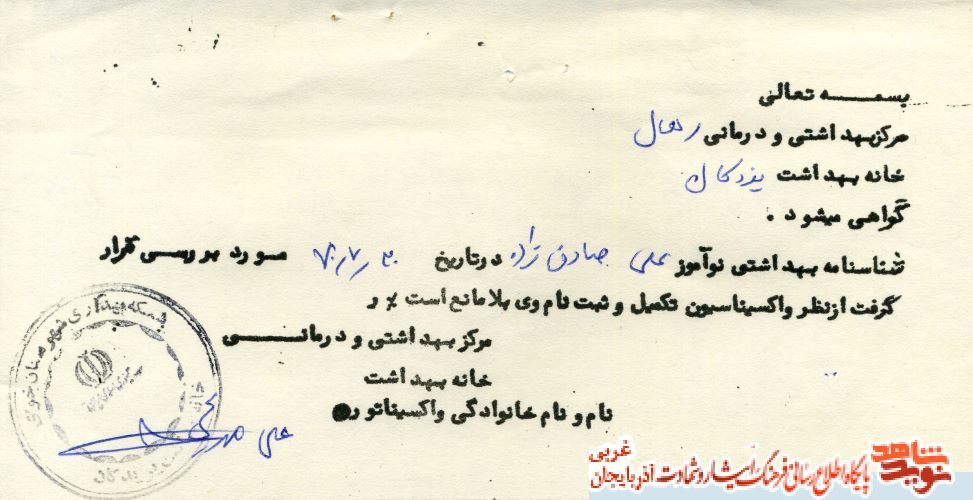 بسمه تعالی
مرکز بهداشتی و درمانی رهال
خانه بهداشت یزدکان
گواهی میشود .
شناسنامه بهداشتی نوآموز علی صادق زاده در تاریخ ۷۰٫۷٫۲۰ مورد بررسی قرار
گرفت از نظر واکسیناسیون تکمیل و ثبت نام وی بلامانع است ٪ ر
مرکز بهداشتی و درمانی
خانه بهداشت
نام و نام خانوادگی واکسیناتور
علی
شبکه بهداری شهرستان خوی
خانه
نوید شاهد
پایگاه اطلاع رسانی فرهنگ ایثار و شهادت آذربایجان غربی